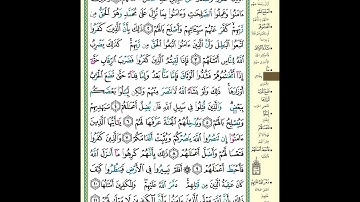 ءَامَنُوا۟ وَعَمِلُوا۟ ٱلصَّـٰلِحَـٰتِ وَءَامَنُوا۟ بِمَا نُزِّلَ عَلَىٰ مُحَمَّدٍ وَهُوَ ٱلْحَقُّ مِن
رَّبِّهِمْ كَفَّرَ عَنْهُمْ سَيِّـَٔاتِهِمْ وَأَصْلَحَ بَالَهُمْ ٢ ذَٰلِكَ بِأَنَّ ٱلَّذِينَ كَفَرُوا۟
ٱتَّبَعُوا۟ ٱلْبَـٰطِلَ وَأَنَّ ٱلَّذِينَ ءَامَنُوا۟ ٱتَّبَعُوا۟ ٱلْحَقَّ مِن رَّبِّهِمْ كَذَٰلِكَ يَضْرِبُ
ٱللَّهُ لِلنَّاسِ أَمْثَـٰلَهُمْ ٣ فَإِذَا لَقِيتُمُ ٱلَّذِينَ كَفَرُوا۟ فَضَرْبَ ٱلرِّقَابِ حَتَّىٰٓ
إِذَآ أَثْخَنتُمُوهُمْ فَشُدُّوا۟ ٱلْوَثَاقَ فَإِمَّا مَنًّۢا بَعْدُ وَإِمَّا فِدَآءً حَتَّىٰ تَضَعَ ٱلْحَرْبُ
أَوْزَارَهَا ذَٰلِكَ وَلَوْ يَشَآءُ ٱللَّهُ لَٱنتَصَرَ مِنْهُمْ وَلَـٰكِن لِّيَبْلُوَا۟ بَعْضَكُم
بِبَعْضٍ وَٱلَّذِينَ قُتِلُوا۟ فِى سَبِيلِ ٱللَّهِ فَلَن يُضِلَّ أَعْمَـٰلَهُمْ ٤ سَيَهْدِيهِمْ
وَيُصْلِحُ بَالَهُمْ ٥ وَيُدْخِلُهُمُ ٱلْجَنَّةَ عَرَّفَهَا لَهُمْ ٦ يَـٰٓأَيُّهَا ٱلَّذِينَ
ءَامَنُوٓا۟ إِن تَنصُرُوا۟ ٱللَّهَ يَنصُرْكُمْ وَيُثَبِّتْ أَقْدَامَكُمْ ٧ وَٱلَّذِينَ كَفَرُوا۟
فَتَعْسًا لَّهُمْ وَأَضَلَّ أَعْمَـٰلَهُمْ ٨ ذَٰلِكَ بِأَنَّهُمْ كَرِهُوا۟ مَآ أَنزَلَ ٱللَّهُ
فَأَحْبَطَ أَعْمَـٰلَهُمْ ٩ ۞ أَفَلَمْ يَسِيرُوا۟ فِى ٱلْأَرْضِ فَيَنظُرُوا۟
كَيْفَ كَانَ عَـٰقِبَةُ ٱلَّذِينَ مِن قَبْلِهِمْ دَمَّرَ ٱللَّهُ عَلَيْهِمْ وَلِلْكَـٰفِرِينَ أَمْثَـٰلُهَا ١٠
ذَٰلِكَ بِأَنَّ ٱللَّهَ مَوْلَى ٱلَّذِينَ ءَامَنُوا۟ وَأَنَّ ٱلْكَـٰفِرِينَ لَا مَوْلَىٰ لَهُمْ ١١